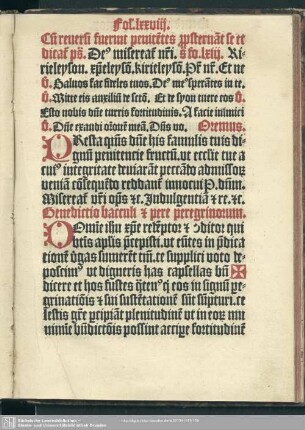 Fol. lxxviij.
Cū reuersi fuerint peniētes ꝓsternāt se et
dicat̄ ps. De⁹ misereat nr̄i. s̄ fo. lxij. Ki-
rieleyson. xp̄eleysō. kirieleysō. Pr̄ nr̄. Et ne
V. Saluos fac serͥos tuos. De⁹ me⁹ sperātes in te.
V. Mitte eis auxiliū de scto. Et de syon tuere eos
Esto nobis dn̄e turris fortitudinis. A facie inimici
V. Dn̄e exaudi or̄onē meā. Dn̄s vo. Oremus.
PResta qūs dn̄e his famulis tuis dig-
nū penitencie fructū. vt eccl̄ie tue a
cui⁹ integritate deuiarāt peccādo admissoꝝ
veniā cōsequēdo reddant̄ innocui P. dn̄m.
Misereat̄ vr̄i om̄s ⁊c. Indulgentiā ⁊ re. ⁊c.
Benedictio baculi ⁊ pere peregrinorum.
DOmine ihu xp̄e redēptor ⁊ ↄditor qui
btis apl̄is p̄cepisti. vt eūtes in p̄dica
tionē v̓gas sumerēt tm̄. te supplici voto de-
poscim⁹ vt digneris has capsellas bn̄ ✠
dicere et hos fustes
grinatiōis ⁊ suū sustētationē sint sūpturi. ce
lestis grē ꝑcipiāt plenitudinē vt in eoꝝ mu
nimine bn̄dictōis possint accipe fortitudinē